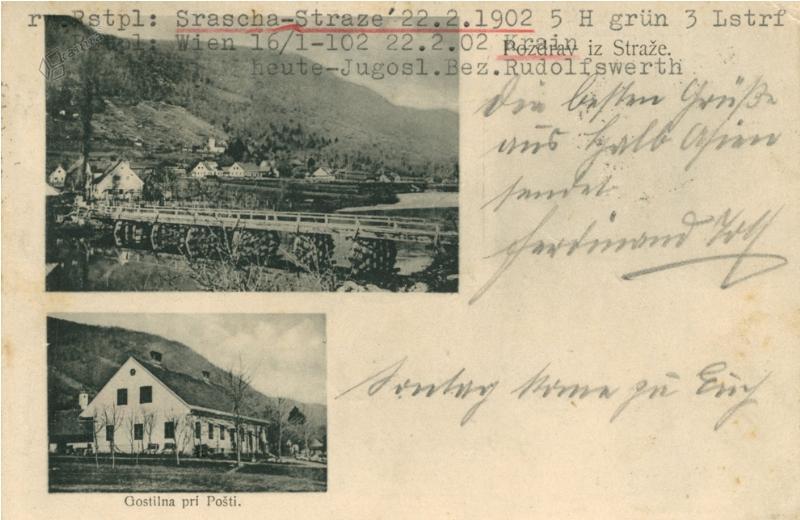 r. Rstpl: Srascha-Straze´22.2.1902 5 H grün 3 Lstrf
Rstpl: Wien 16/1-102 22.2.02 Krain
Pozdrav iz Straže.
heute-Jugosl.Bez.Rudolfswerth
Die besten Grüße
aus Halb Asien
sendet
Ferdinand
Sontag kome zu Euch
Gostilna pri Pošti.